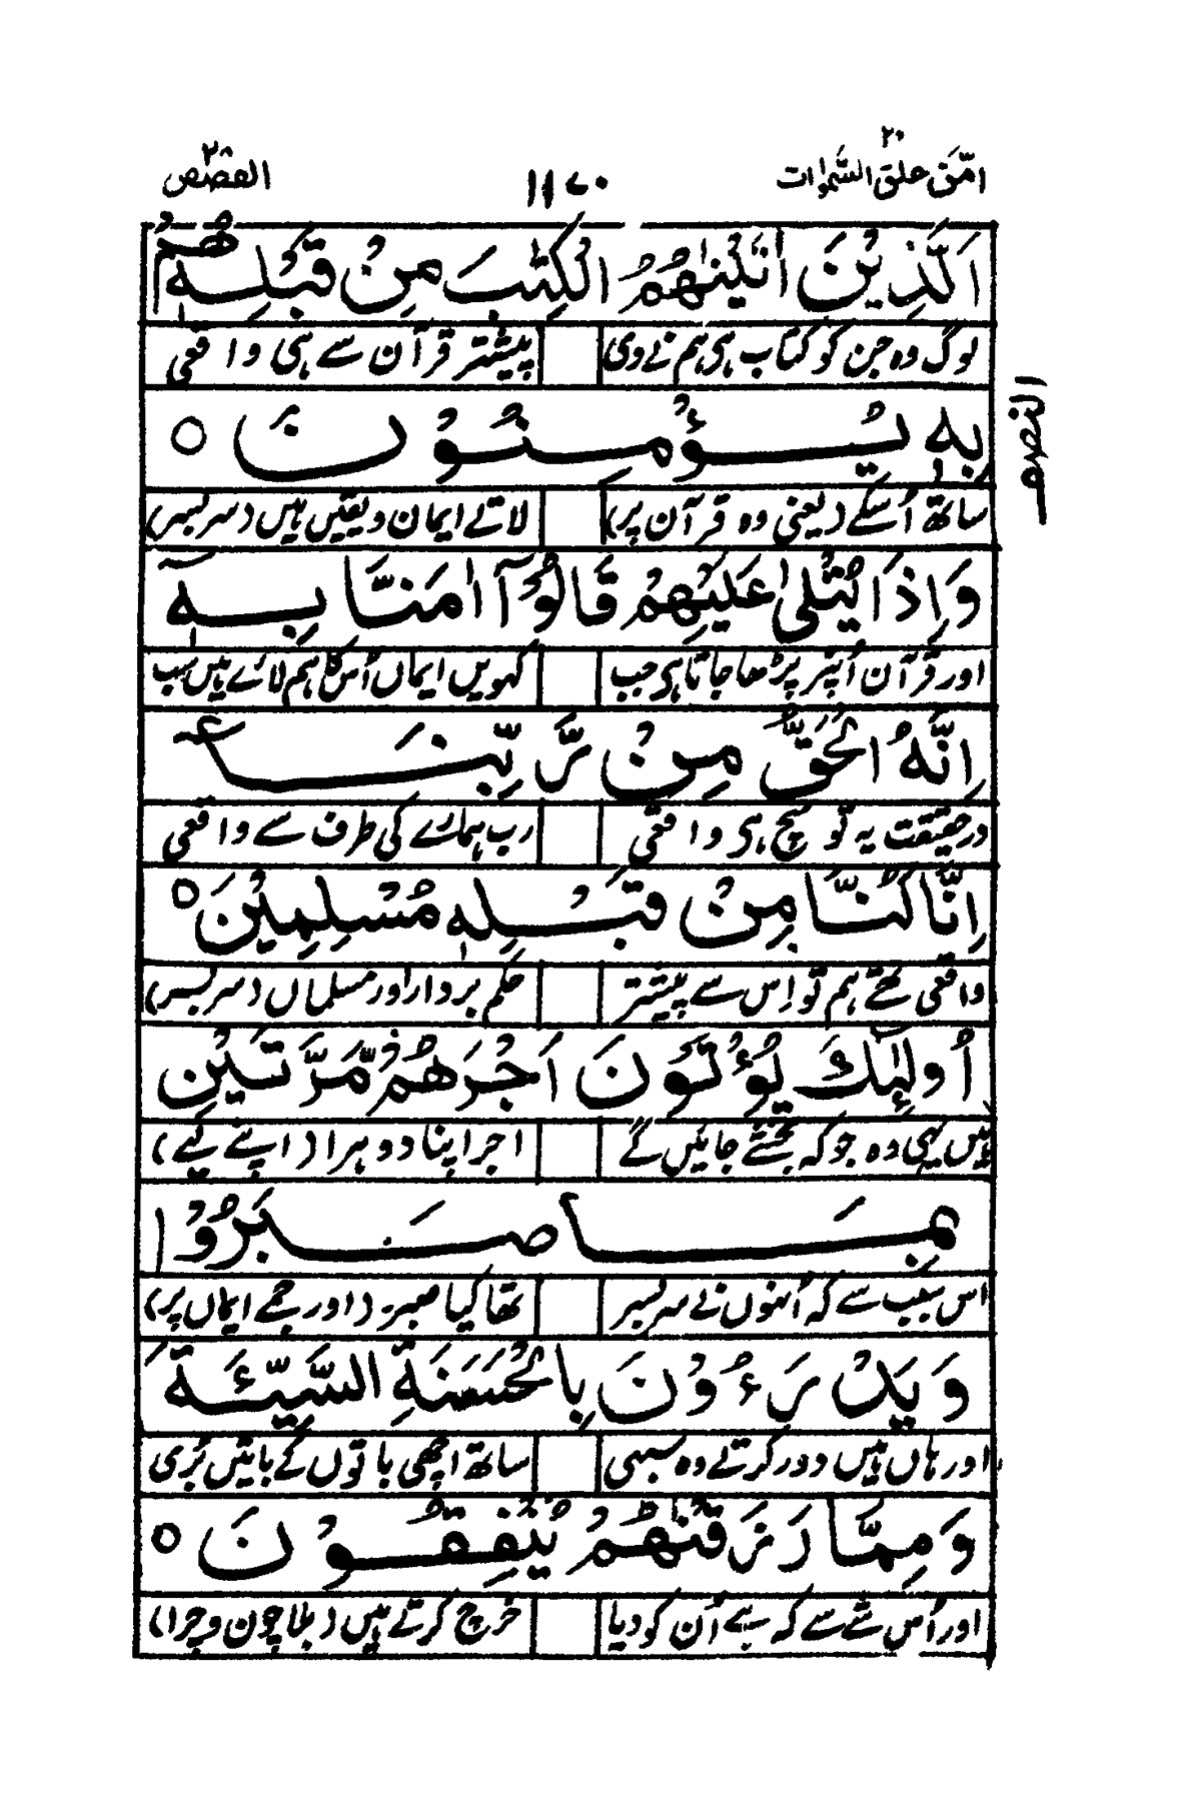 امّن خلق السّمٰوات ۲۰
۱۱۷۰
القصص ۲۸
اَلَّذِيْنَ اٰتَيْنٰهُمُ الْكِتٰبَ مِنْ قَبْلِهٖ هُمْ
لوگ وہ جن کو کتاب ہی ہم نے دی پیشتر قرآن سے ہی واقعی
بِهٖ يُؤْمِنُوْنَ ○
ساتھ اُسکے (یعنی وہ قرآن پر) لاتے ایمان و یقیں ہیں (سر بسر)
وَاِذَا يُتْلٰى عَلَيْهِمْ قَالُوْٓا اٰمَنَّا بِهٖٓ
اور قرآن اُنپر پڑھا جاتا ہی جب کہویں ایماں اُس کا ہم لائے ہیں سب
اِنَّهُ الْحَقُّ مِنْ رَّبِّنَآ
درحقیقت یہ تو سچ ہی واقعی رب ہمارے کی طرف سے واقعی
اِنَّا كُنَّا مِنْ قَبْلِهٖ مُسْلِمِيْنَ ○
واقعی تھے ہم تو اِس سے پیشتر حکم بردار اور مسلماں (سر بسر)
اُولٰٓئِكَ يُؤْتَوْنَ اَجْرَهُمْ مَّرَّتَيْنِ
ہیں یہی وہ جو کہ بخشے جائیں گے اجر اپنا دوہرا (اپنے لیے)
بِمَا صَبَرُوْا
اس سبب سے کہ اُنہوں نے سر بسر تھا کیا صبر (اور جمے ایماں پر)
وَيَدْرَءُوْنَ بِالْحَسَنَةِ السَّيِّئَةَ
اور ہاں ہیں دور کرتے وہ سبھی ساتھ اچھی باتوں کے باتیں بُری
وَمِمَّا رَزَقْنٰهُمْ يُنْفِقُوْنَ ○
اور اُس شے سے کہ ہے اُن کو دیا خرچ کرتے ہیں (بلا چون و چرا)